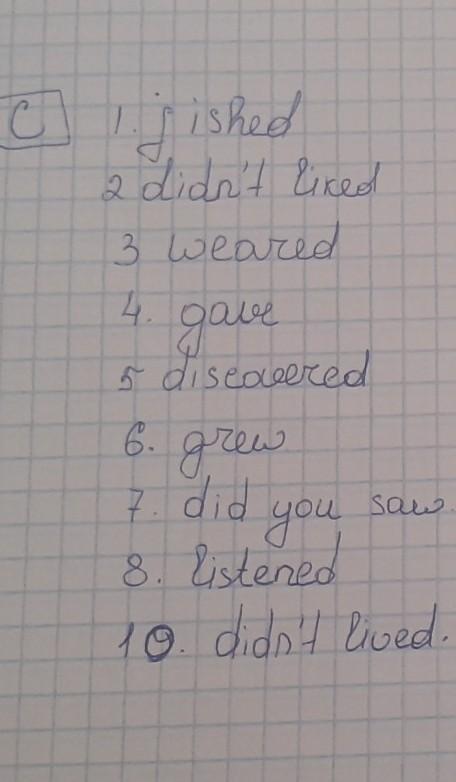 C 1. fished
2 didn't liked
3 weared
4. gave
5 discovered
6. grew
7. did you saw.
8. listened
10. didn't lived.